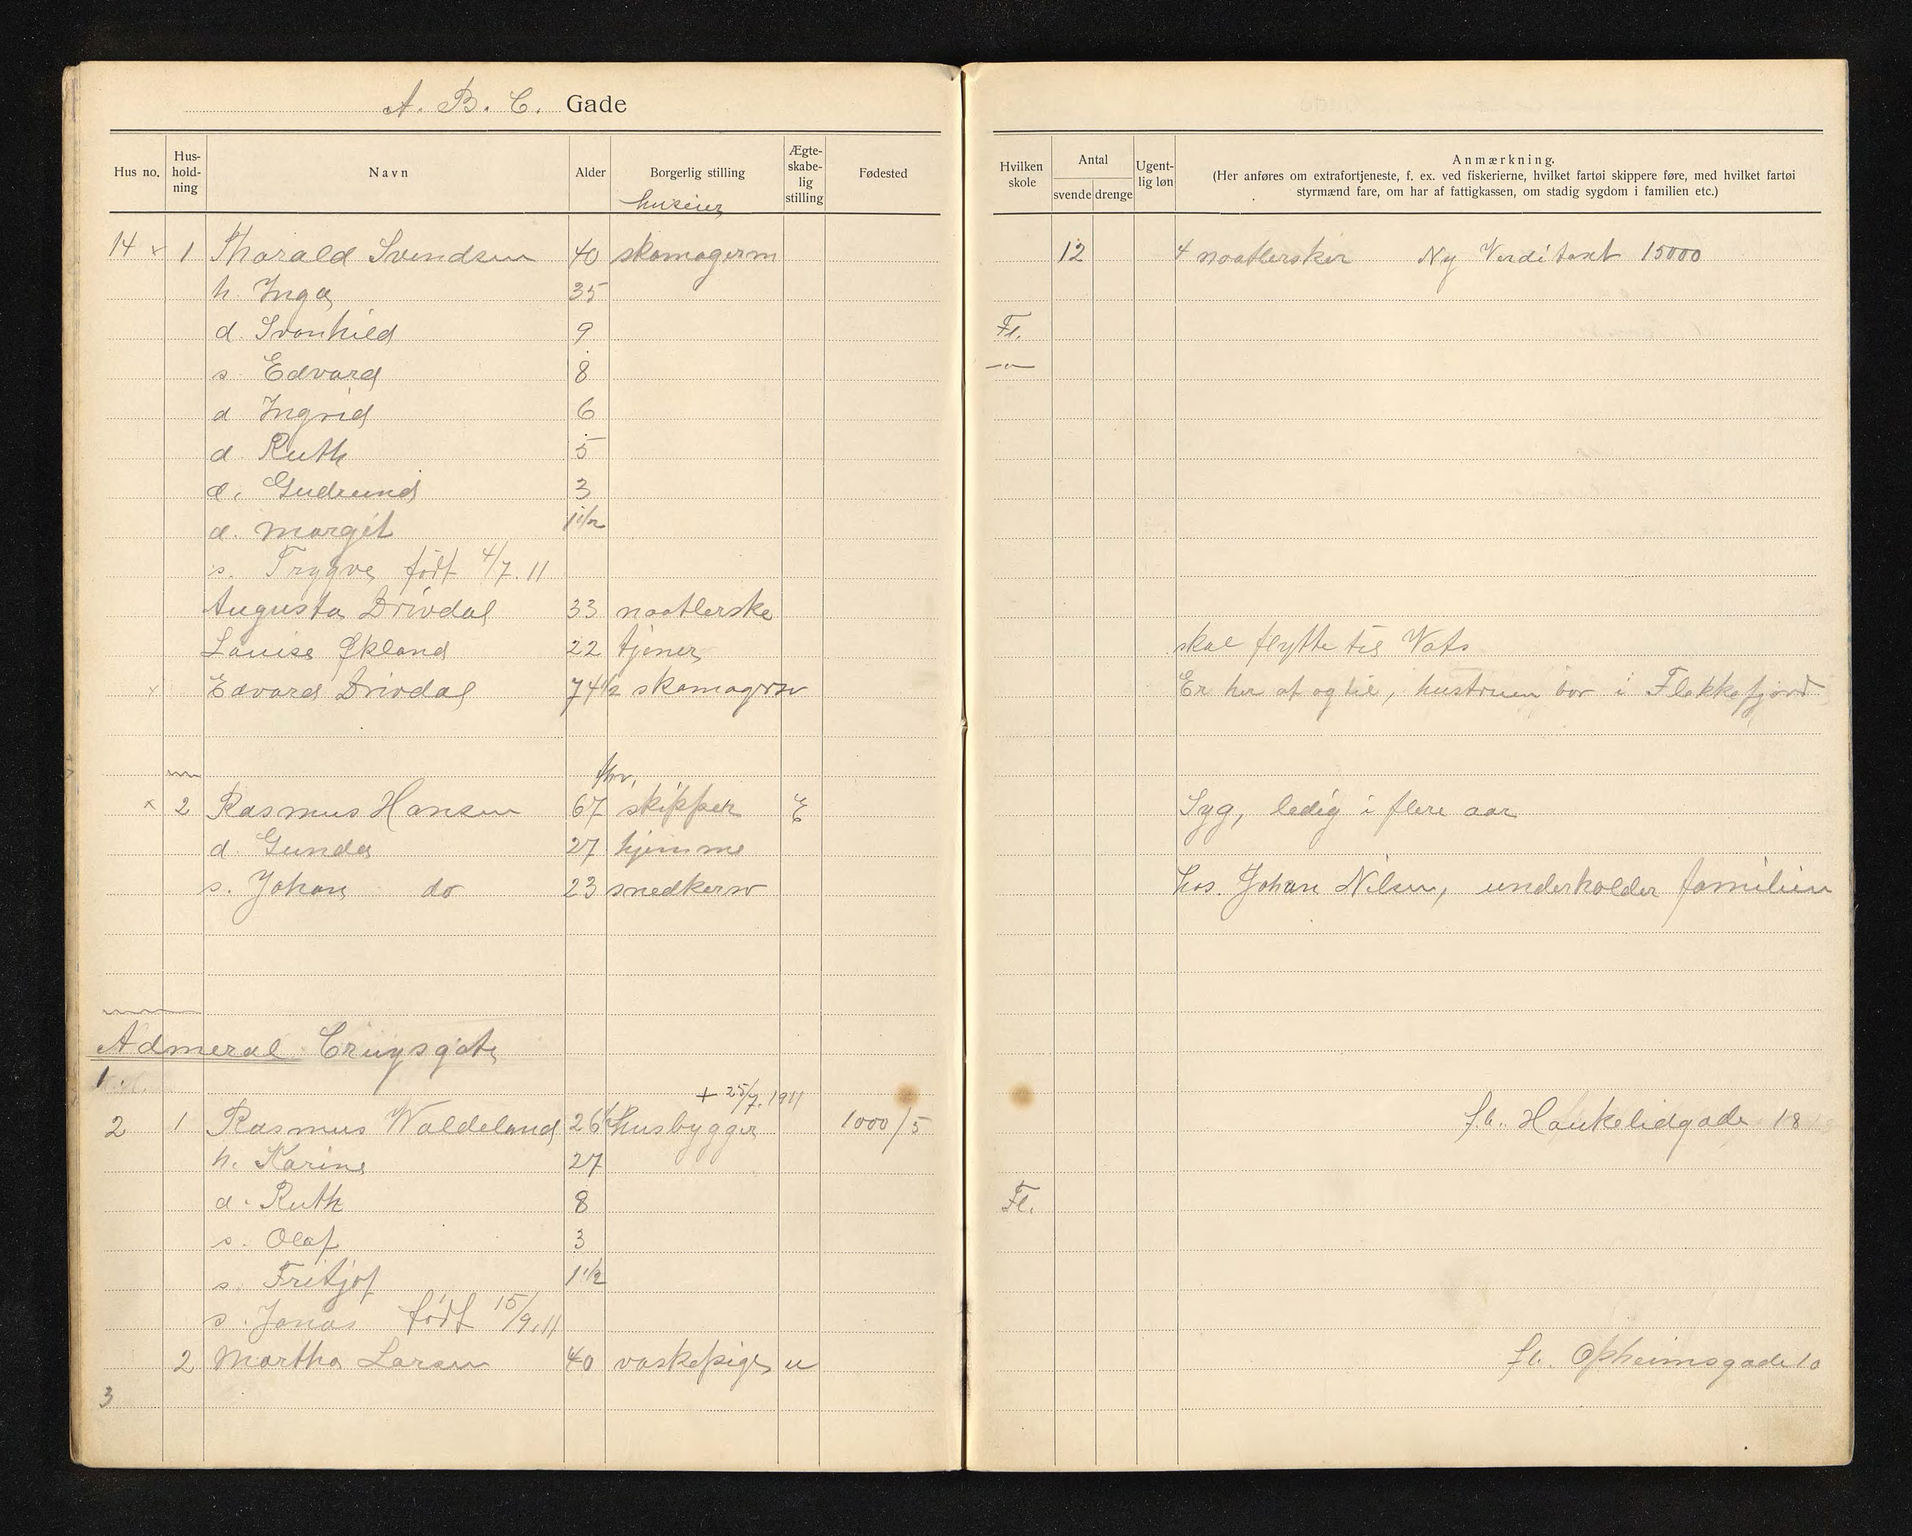 A. B. C. Gade
Hus no. Hus-hold-ning Navn Alder Borgerlig stilling Ægte-skabe-lig stilling Fødested Hvilken skole Antal svende drenge Ugent-lig løn Anmærkning.
(Her anføres om extrafortjeneste, f. ex. ved fiskerierne, hvilket fartøi skippere føre, med hvilket fartøi
styrmænd fare, om har af fattigkassen, om stadig sygdom i familien etc.)
huseier
14 x 1 Thorald Svendsen 40 skomagerm 12 4 naatlersker Ny Verditaxt 15000
h. Inga 35
d. Svanhild 9 Fl.
s. Edvard 8 —"—
d Ingrid 6
d. Ruth 5
d. Gudrund 3
d. Margit 1 1/2
s. Trygve født 4/7.11
Augusta Drivdal 33 naatlerske
Louise Økland 22 tjener skal flytte til Vats
x Edvard Drivdal 74 1/2 skomagersv Er her af og til, hustruen bor i Flekkefjord
fhv.
x 2 Rasmus Hansen 67 skipper E Syg, ledig i flere aar
d. Gunda 27 hjemme
s. Johan do 23 snedkersv hos. Johan Nilsen, underholder familien
Admeral Cruysgate
1.
+ 25/7.1911
2 1 Rasmus Waldeland 26 1/2 husbygger 1000/5 fl. Haukelidgade 18
h. Karine 27
d. Ruth 8 Fl.
s. Olaf 3
s. Fritjof 1 1/2
s. Jonas født 15/9.11
2 Martha Larsen 40 vaskepige u fl. Opheimsgade 10
3